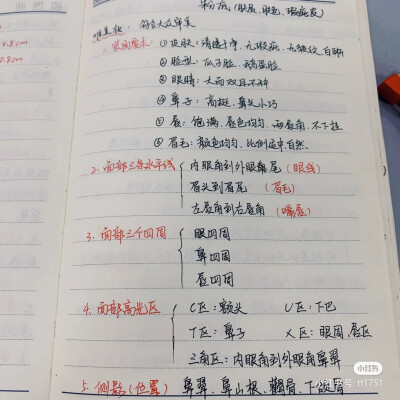 粉底 (肤质、肤色、瑕疵度)
唯美妆: 符合大众审美
1. 装面要求: ① 皮肤: 清透干净, 无瑕疵, 无皱纹, 白皙
② 脸型: 瓜子脸、鹅蛋脸
③ 眼睛: 大而双且不肿
④ 鼻子: 高挺, 鼻头小巧
⑤ 唇: 饱满, 唇色均匀, 唇角, 不下挂
⑥ 眉毛: 颜色均匀, 比例适中, 自然。
2. 面部三条水平线
内眼角到外眼角尾 (眼线)
眉头到眉尾 (眉毛)
左唇角到右唇角 (嘴唇)
3. 面部三个四周
眼四周
鼻四周
唇四周
4. 面部高光区
C区: 额头 U区: 下巴
T区: 鼻子 X区: 眼周、唇区
三角区: 内眼角到外眼角鼻翼
5. 侧影 (位置) 鼻翼、鼻山根、颧骨、下颌骨
0.8cm
0.8cm
小红书
小红书号: tt1751